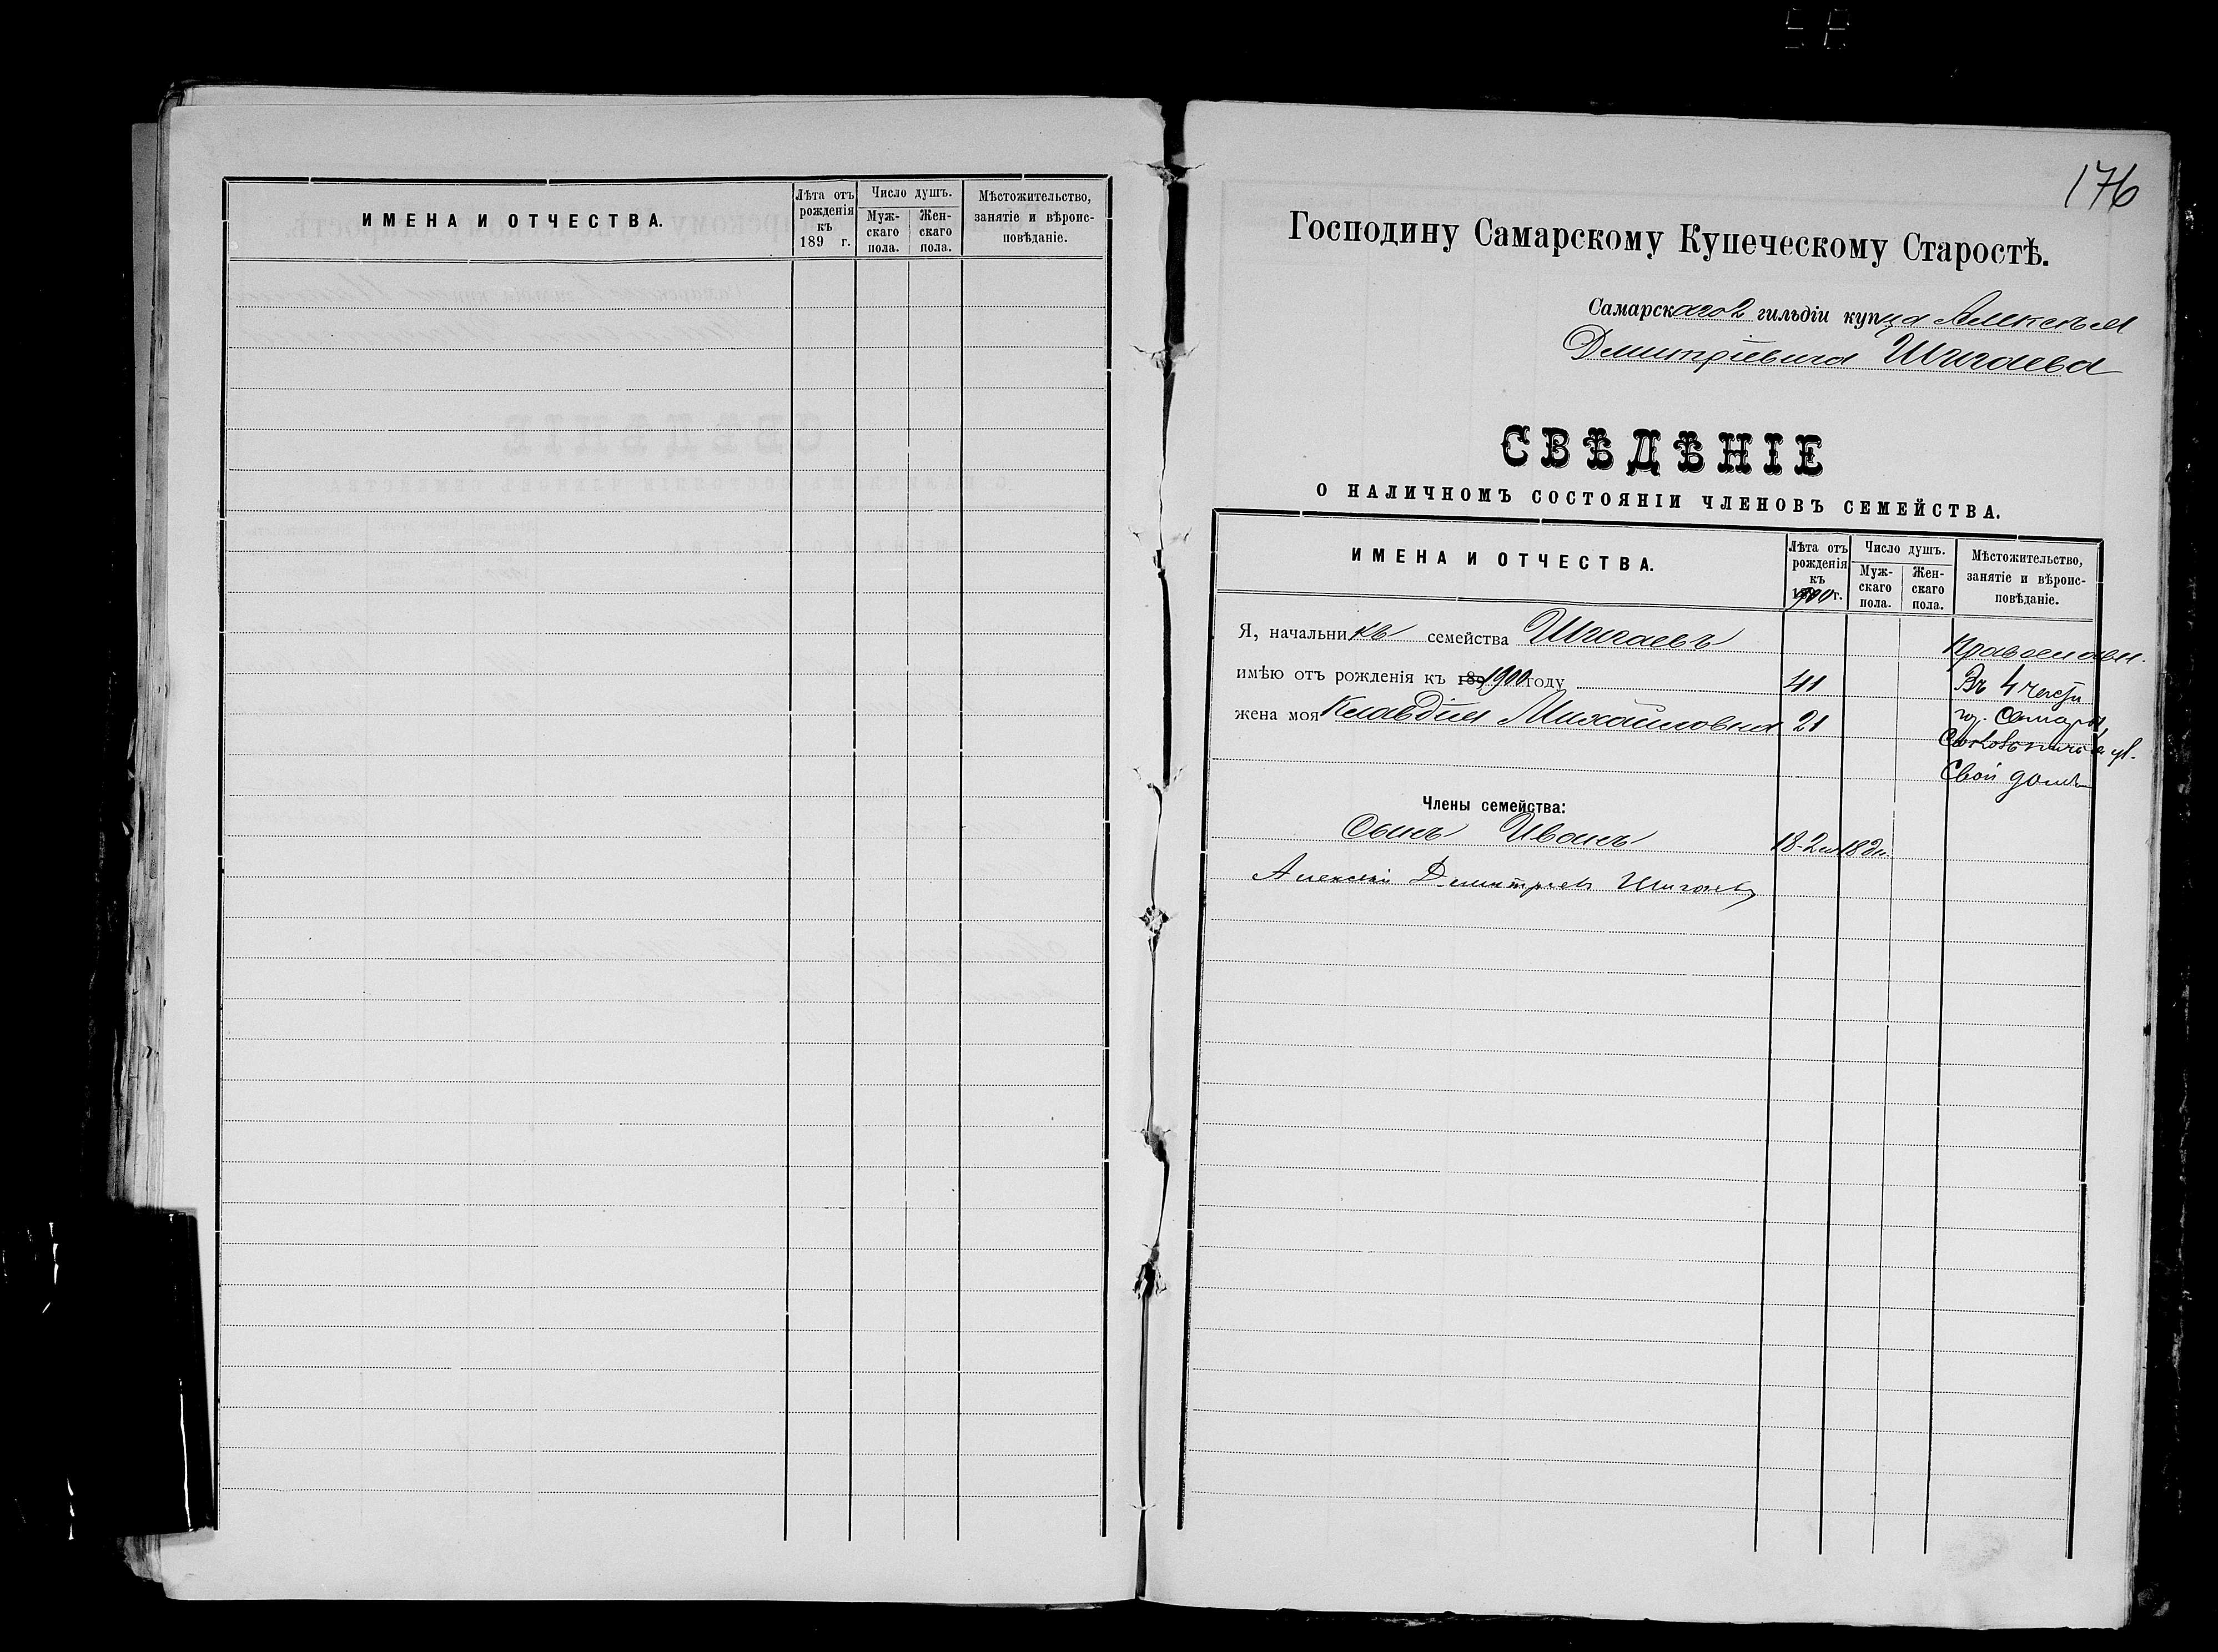 ИМЕНА И ОТЧЕСТВА.
Лѣта отъ рожденія къ 189 г.
Число душъ.
Мужскаго пола.
Женскаго пола.
Мѣстожительство, занятіе и вѣроисповѣданіе.
176
Господину Самарскому Купеческому Старостѣ.
Самарскаго 2 гильдіи купца Алексѣя
Дмитріевича Шигаева
СВѢДѢНІЕ
О НАЛИЧНОМЪ СОСТОЯНІИ ЧЛЕНОВЪ СЕМЕЙСТВА.
ИМЕНА И ОТЧЕСТВА.
Лѣта отъ рожденія къ 1900 г.
Число душъ.
Мужскаго пола.
Женскаго пола.
Мѣстожительство, занятіе и вѣроисповѣданіе.
Я, начальникъ семейства Шигаевъ Православн.
имѣю отъ рожденія къ 189 1900 году 41 Въ 4 части
жена моя Клавдия Михайловна 21 гор. Самары
ул.
Свой домъ
Члены семейства:
Сынъ Иванъ 18
Алексѣй Дмитріевъ Шигаевъ